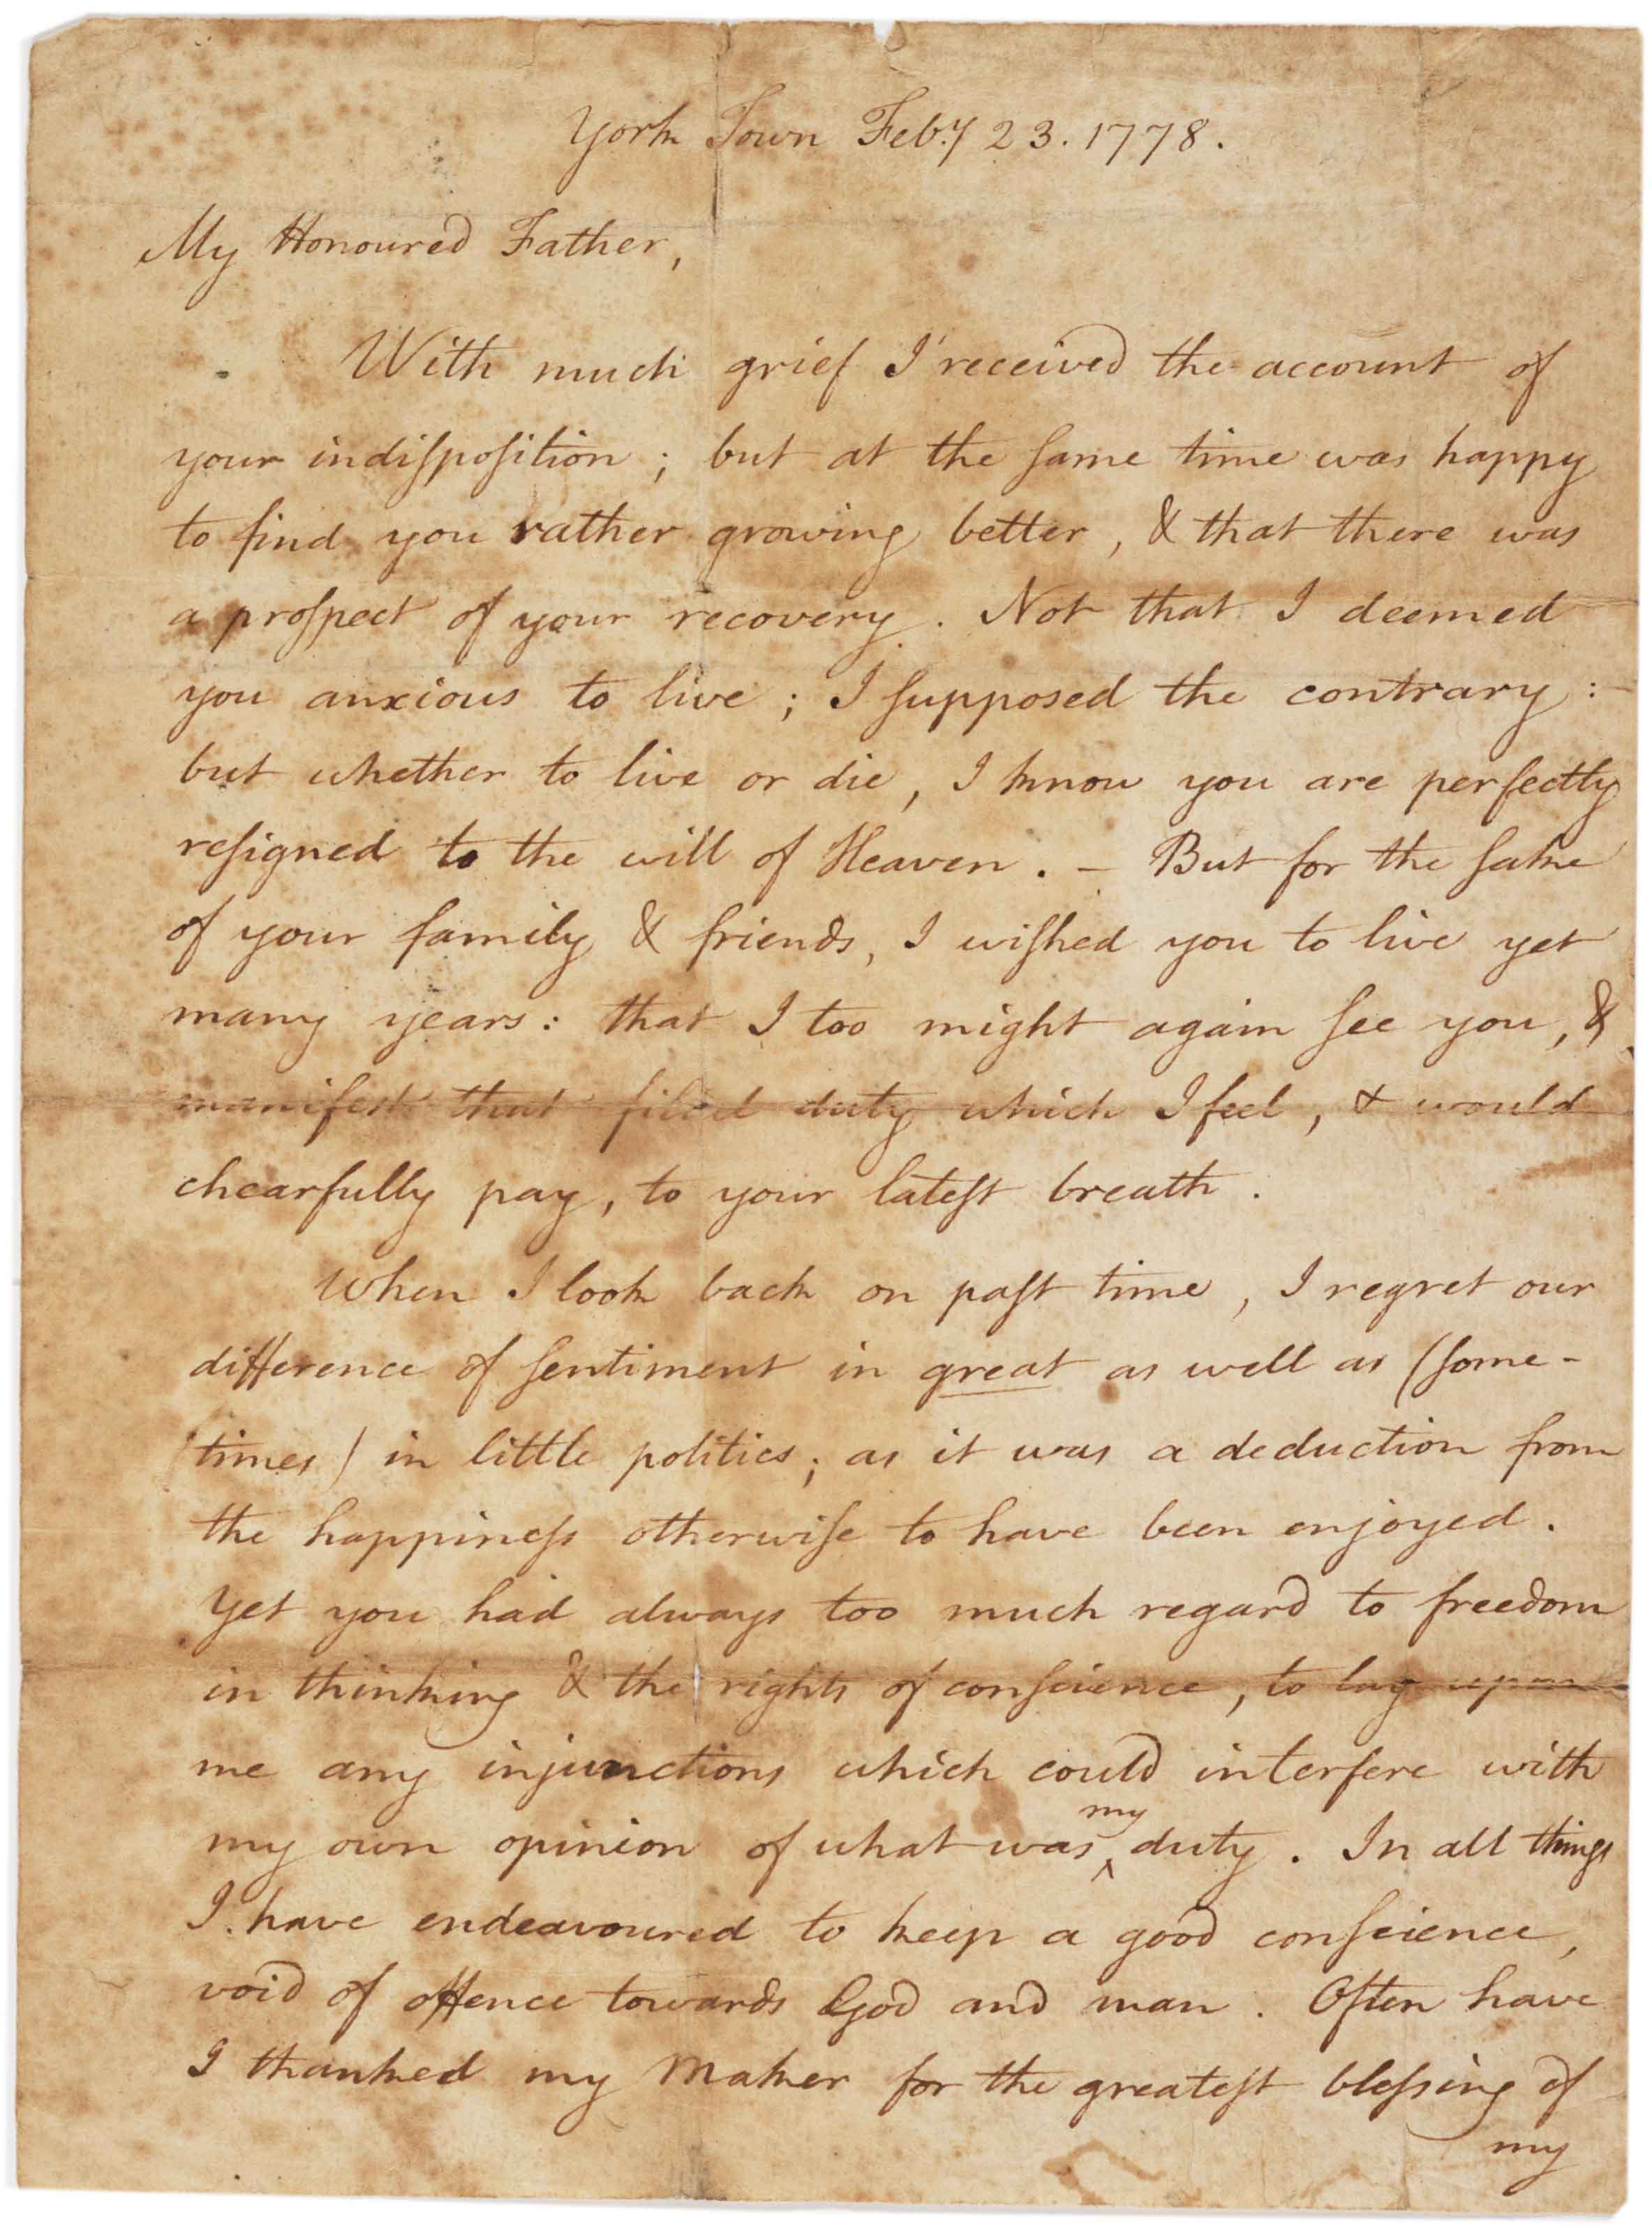 York Town Feb.y 23. 1778.
My Honoured Father,
With much grief I received the account of
your indiſpoſition; but at the ſame time was happy
to find you rather growing better, & that there was
a proſpect of your recovery. Not that I deemed
you anxious to live; I ſupposed the contrary:
but whether to live or die, I know you are perfectly
reſigned to the will of Heaven. – But for the ſake
of your family & friends, I wiſhed you to live yet
many years: that I too might again ſee you, &
manifest that filial duty which I feel, & would
chearfully pay, to your lateſt breath.
When I look back on paſt time, I regret our
difference of ſentiment in great as well as (ſome-
times) in little politics; as it was a deduction from
the happineſs otherwiſe to have been enjoyed.
Yet you had always too much regard to freedom
in thinking & the rights of conſcience, to lay upon
me any injunctions which could interfere with
my own opinion of what was my duty. In all things
I have endeavoured to keep a good conſcience,
void of offence towards God and man. Often have
I thanked my Maker for the greateſt bleſsing of
my